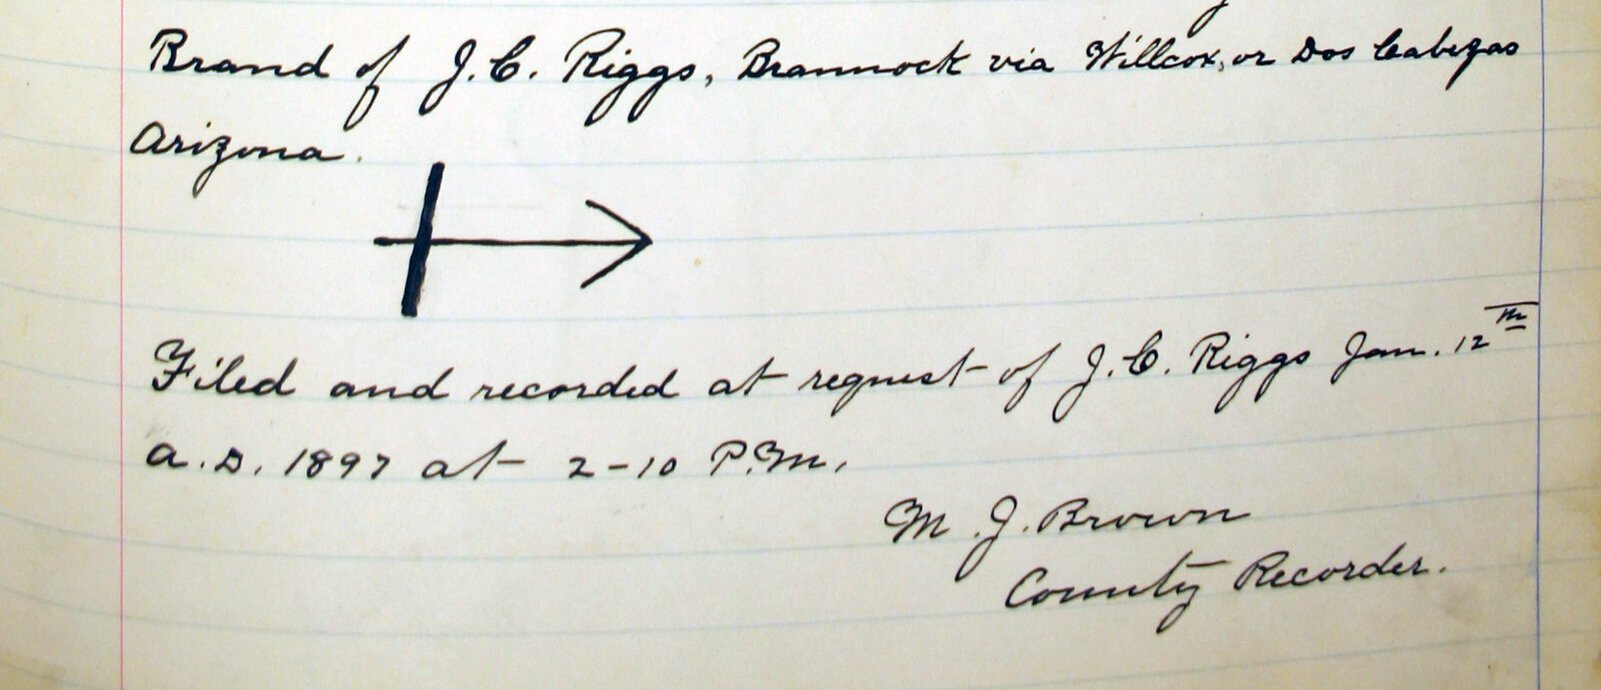 Brand of J. C. Riggs, Brannock via Willcox, or Dos Cabezas
Arizona.
Filed and recorded at request of J. C. Riggs Jan. 12th
A.D. 1897 at 2-10 P.M.
M. J. Brown
County Recorder.